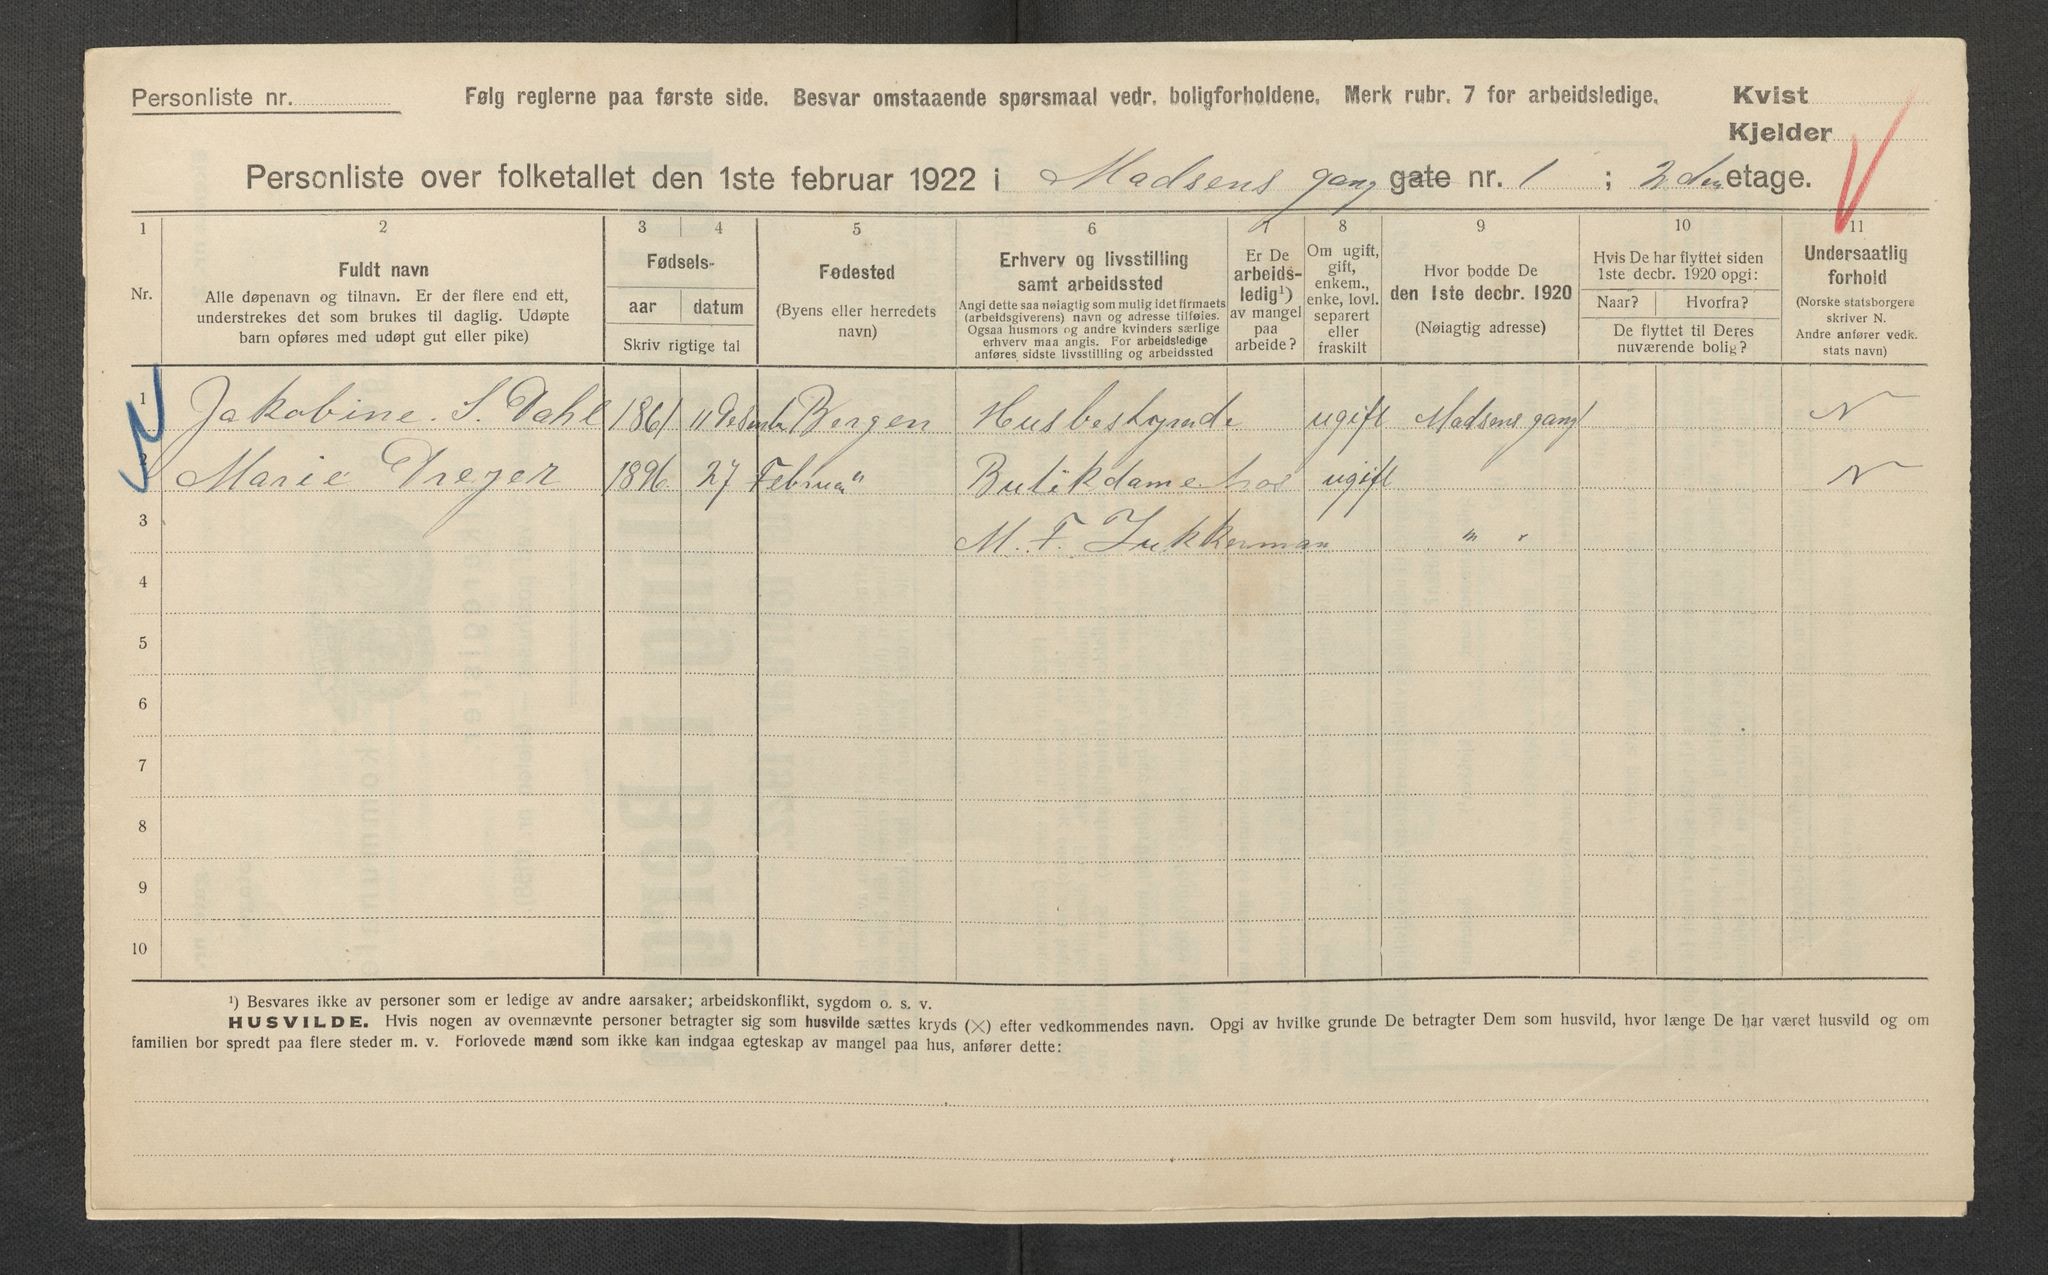 Personliste nr.
Følg reglerne paa første side. Besvar omstaaende spørsmaal vedr. boligforholdene. Merk rubr. 7 for arbeidsledige.
Kvist
Kjelder
Personliste over folketallet den 1ste februar 1922 i Madsens gang gate nr. 1 ; 2den etage.
1 2 3 4 5 6 7 8 9 10 11
Nr.
Fuldt navn
Alle døpenavn og tilnavn. Er der flere end ett,
understrekes det som brukes til daglig. Udøpte
barn opføres med udøpt gut eller pike)
Fødsels-
aar datum
Skriv rigtige tal
Fødested
(Byens eller herredets
navn)
Erhverv og livsstilling
samt arbeidssted
Angi dette saa nøiagtig som mulig idet firmaets
(arbeidsgiverens) navn og adresse tilføies.
Ogsaa husmors og andre kvinders særlige
erhverv maa angis. For arbeidsledige
anføres sidste livsstilling og arbeidssted
Er De
arbeids-
ledig¹)
av mangel
paa
arbeide?
Om ugift,
gift,
enkem.,
enke, lovl.
separert
eller
fraskilt
Hvor bodde De
den 1ste decbr. 1920
(Nøiagtig adresse)
Hvis De har flyttet siden
1ste decbr. 1920 opgi:
Naar? Hvorfra?
De flyttet til Deres
nuværende bolig?
Undersaatlig
forhold
(Norske statsborgere
skriver N.
Andre anfører vedk.
stats navn)
1 Jakobine. S. Dahl 1861 11 Desembr Bergen Husbestyrende ugift Madsens gang 1 N
2 Marie Dreyer 1896 27 Februar " Butikdame hos ugift N
3 M. F. Zukkerman " "
4
5
6
7
8
9
10
¹) Besvares ikke av personer som er ledige av andre aarsaker; arbeidskonflikt, sygdom o. s. v.
HUSVILDE. Hvis nogen av ovennævnte personer betragter sig som husvilde sættes kryds (×) efter vedkommendes navn. Opgi av hvilke grunde De betragter Dem som husvild, hvor længe De har været husvild og om
familien bor spredt paa flere steder m. v. Forlovede mænd som ikke kan indgaa egteskap av mangel paa hus, anfører dette: